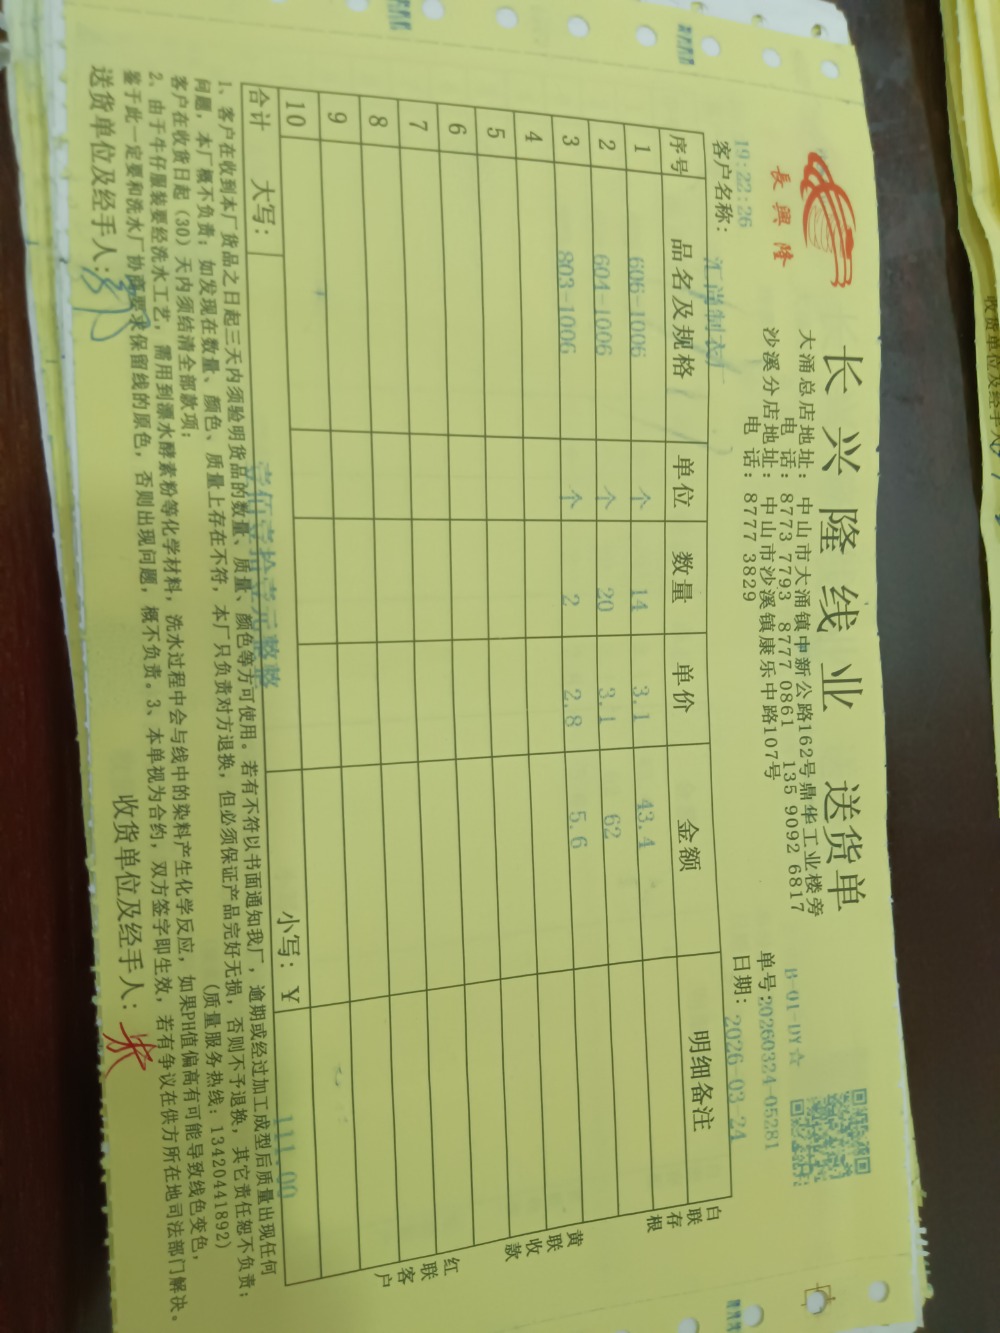 長興隆
长兴隆线业 送货单
大涌总店地址: 中山市大涌镇中新公路162号鼎华工业楼旁
电 话: 8773 7793 8777 0861 135 9092 6817
沙溪分店地址: 中山市沙溪镇康乐中路107号
电 话: 8777 3829
B-01-DY☆
单号:20260324-05281
19:22:26
客户名称: 汇尚制衣厂
日期: 2026-03-24
序号 品名及规格 单位 数量 单价 金额 明细备注
1 606-1006 个 14 3.1 43.4
2 604-1006 个 20 3.1 62
3 803-1006 个 2 2.8 5.6
4
5
6
7
8
9
10
合计 大写: 壹佰壹拾壹元整 小写: ¥ 111.00
白联存根
黄联收款
红联客户
1、客户在收到本厂货品之日起三天内须验明货品的数量、质量、颜色等方可使用。若有不符以书面通知我厂,逾期或经过加工成型后质量出现任何
问题,本厂概不负责;如发现在数量、颜色、质量上存在不符,本厂只负责对方退换,但必须保证产品完好无损,否则不予退换,其它责任恕不负责;
客户在收货日起(30)天内须结清全部款项; (质量服务热线:13420441892)
2、由于牛仔服装要经洗水工艺,需用到漂水酵素粉等化学材料,洗水过程中会与线中的染料产生化学反应,如果PH值偏高有可能导致线色变色,
鉴于此一定要和洗水厂协商要求保留线的原色,否则出现问题,概不负责。3、本单视为合约,双方签字即生效,若有争议在供方所在地司法部门解决。
送货单位及经手人:
收货单位及经手人:
收货单位及经手人